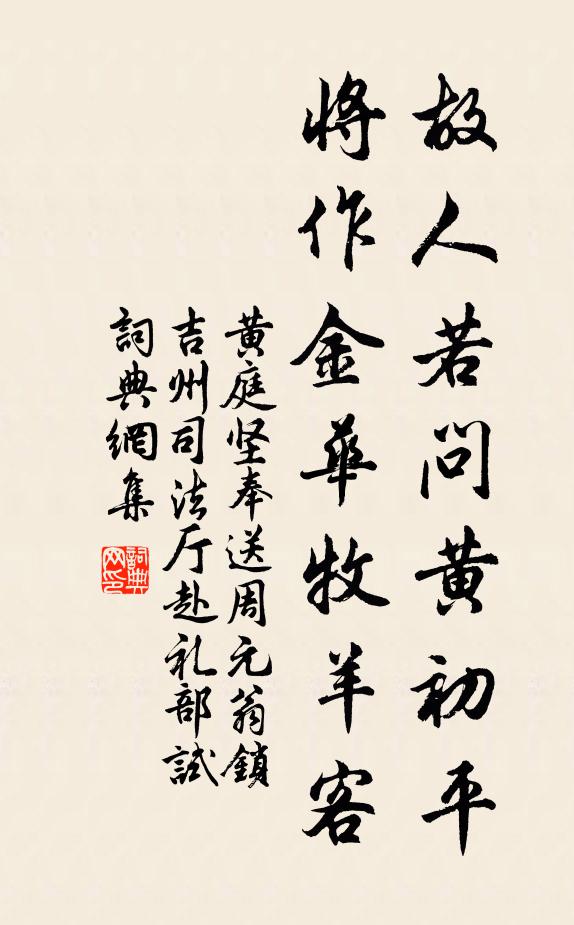 故人若问黄初平
将作金華牧羊客
黄庭坚奉送周元翁鎖
吉州司法厅赴礼部試
詞典網集
詞典网印